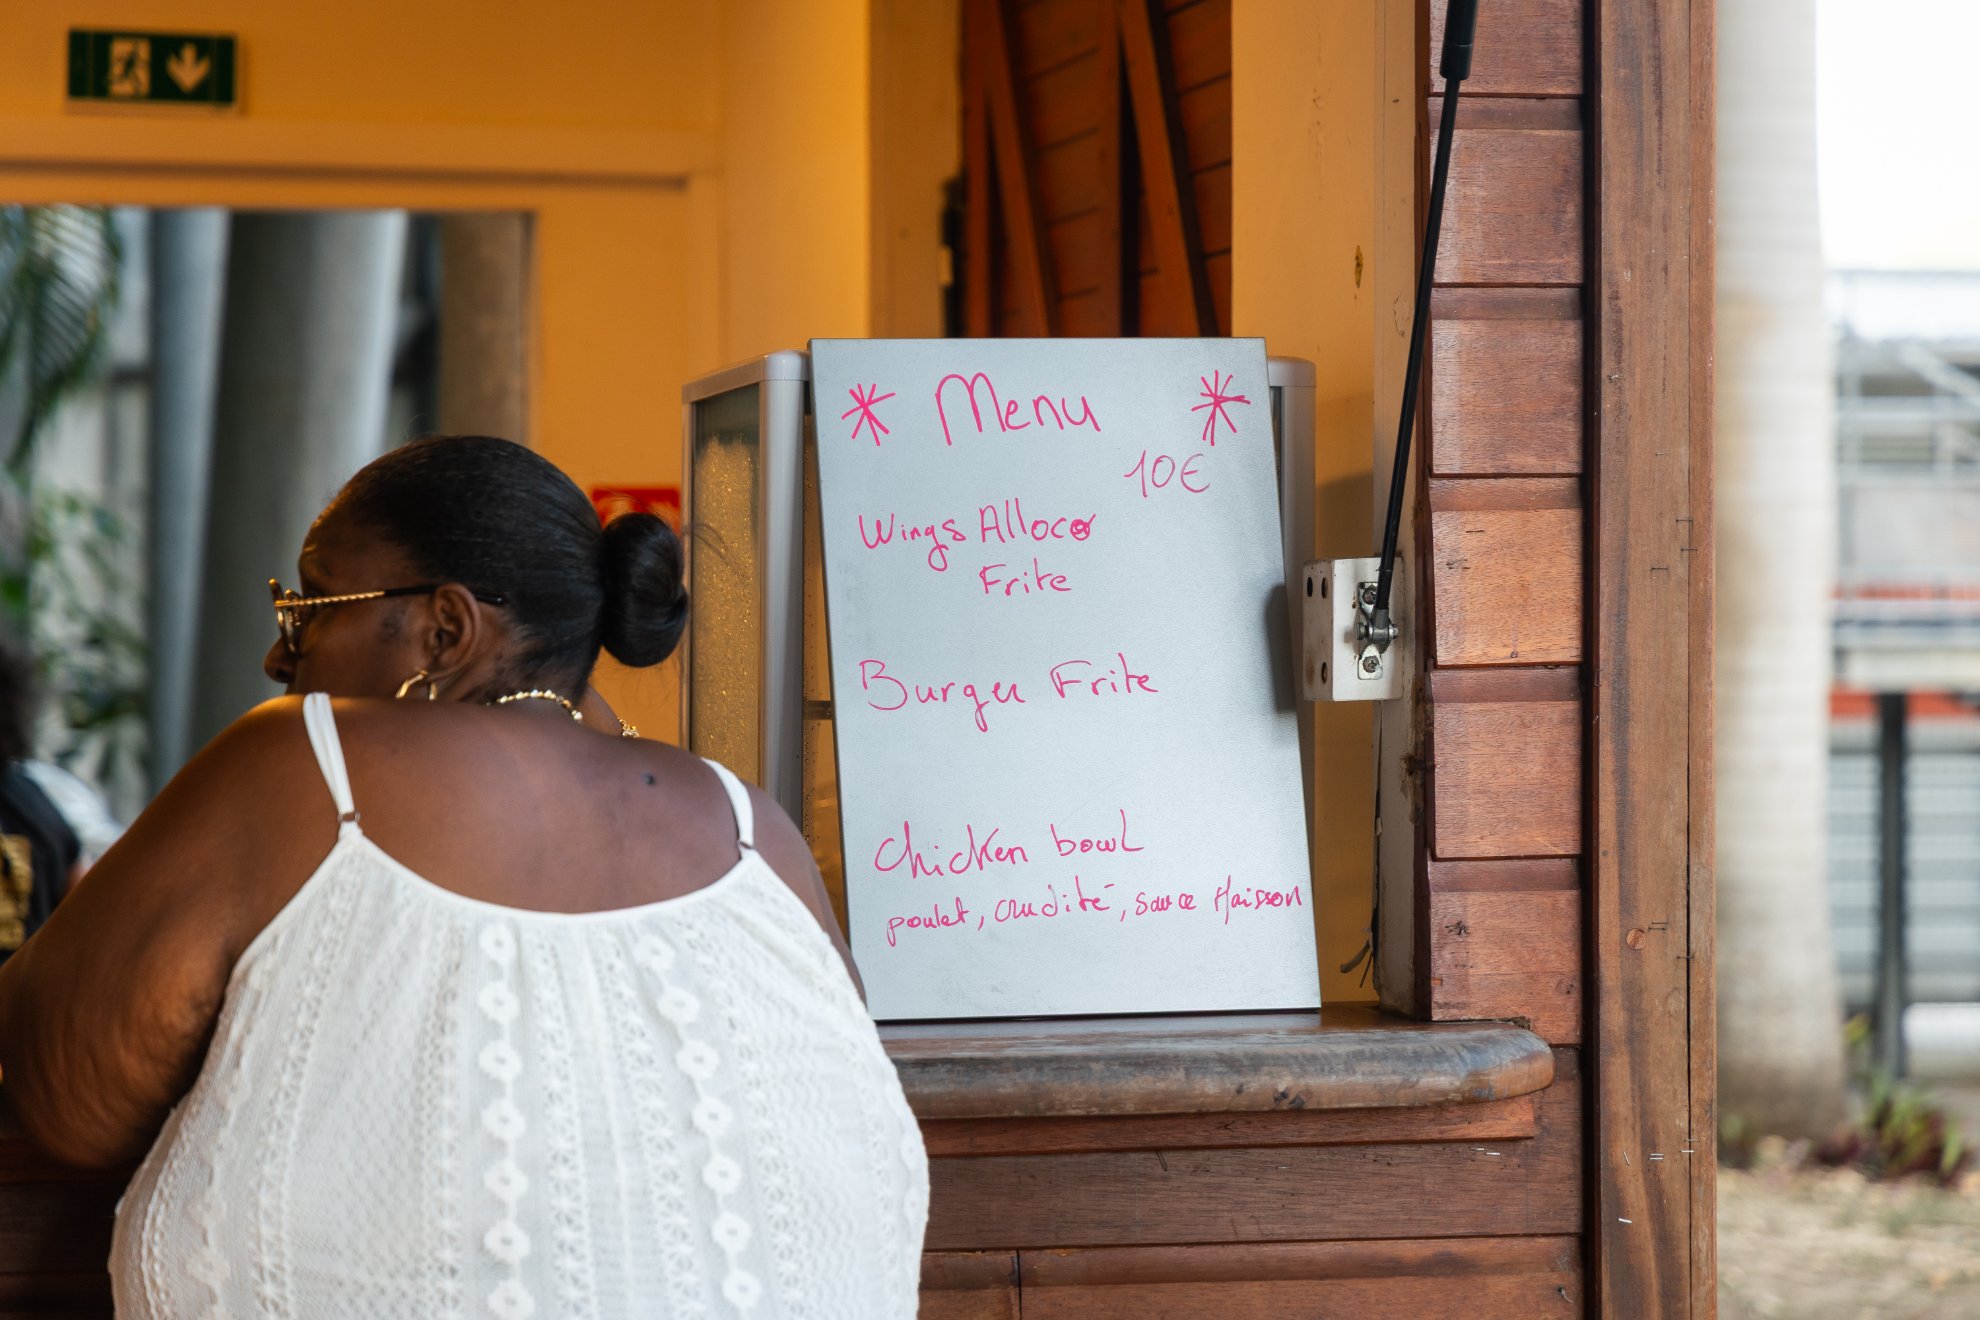 Menu
10€
Wings Alloco
Frite
Burger Frite
Chicken bowl
poulet, crudité, sauce Maisson